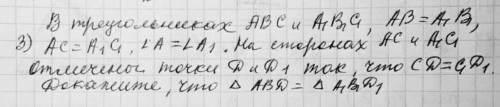 В треугольниках ABC и A₁B₁C₁, AB = A₁B₁,
3) AC = A₁C₁, ∠A = ∠A₁. На сторонах AC и A₁C₁
отмечены точки D и D₁ так, что CD = C₁D₁.
Докажите, что △ ABD = △ A₁B₁D₁